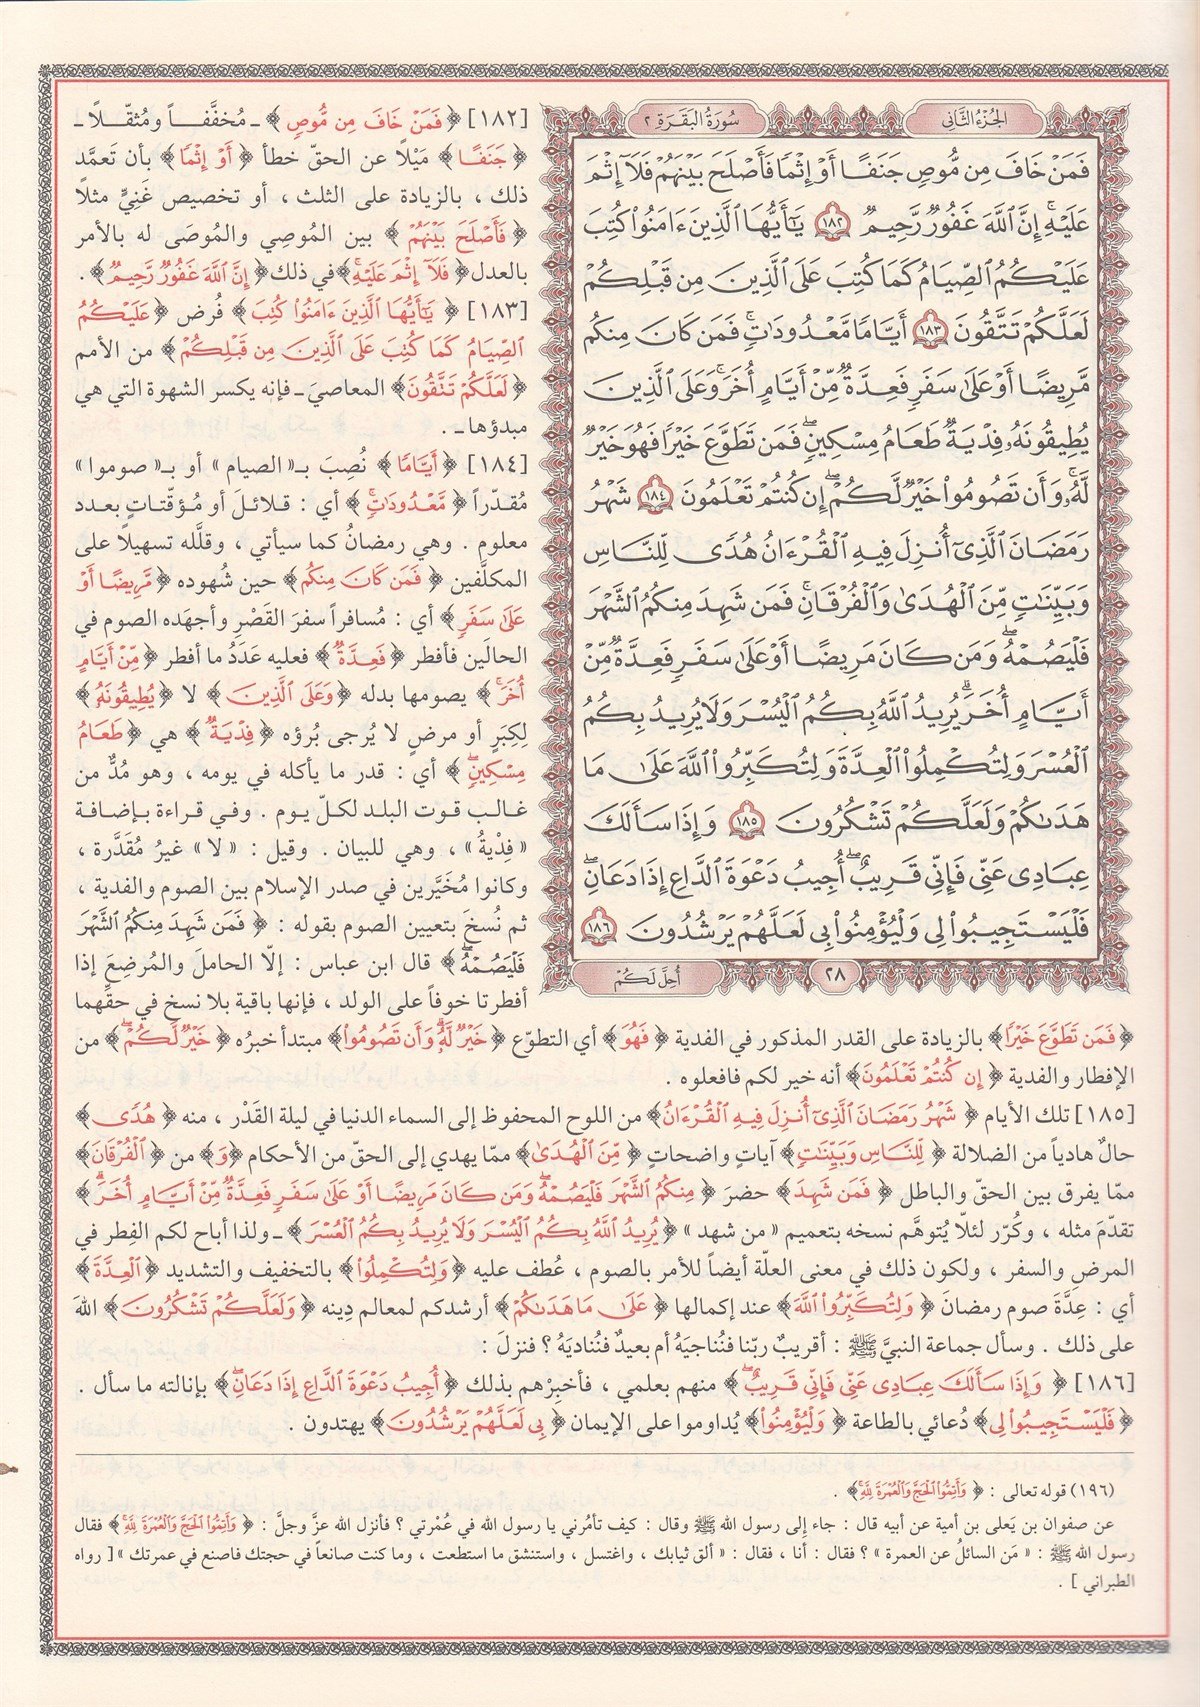 الجُزْءُ الثَّانِي
سُورَةُ البَقَرَةِ ٢
فَمَنْ خَافَ مِن مُّوصٍ جَنَفًا أَوْ إِثْمًا فَأَصْلَحَ بَيْنَهُمْ فَلَآ إِثْمَ
عَلَيْهِ ۚ إِنَّ ٱللَّهَ غَفُورٌ رَّحِيمٌ ١٨٢ يَـٰٓأَيُّهَا ٱلَّذِينَ ءَامَنُوا۟ كُتِبَ
عَلَيْكُمُ ٱلصِّيَامُ كَمَا كُتِبَ عَلَى ٱلَّذِينَ مِن قَبْلِكُمْ
لَعَلَّكُمْ تَتَّقُونَ ١٨٣ أَيَّامًا مَّعْدُودَٰتٍ ۚ فَمَن كَانَ مِنكُم
مَّرِيضًا أَوْ عَلَىٰ سَفَرٍ فَعِدَّةٌ مِّنْ أَيَّامٍ أُخَرَ ۚ وَعَلَى ٱلَّذِينَ
يُطِيقُونَهُۥ فِدْيَةٌ طَعَامُ مِسْكِينٍ ۖ فَمَن تَطَوَّعَ خَيْرًا فَهُوَ خَيْرٌ
لَّهُۥ ۚ وَأَن تَصُومُوا۟ خَيْرٌ لَّكُمْ ۖ إِن كُنتُمْ تَعْلَمُونَ ١٨٤ شَهْرُ
رَمَضَانَ ٱلَّذِىٓ أُنزِلَ فِيهِ ٱلْقُرْءَانُ هُدًى لِّلنَّاسِ
وَبَيِّنَـٰتٍ مِّنَ ٱلْهُدَىٰ وَٱلْفُرْقَانِ ۚ فَمَن شَهِدَ مِنكُمُ ٱلشَّهْرَ
فَلْيَصُمْهُ ۖ وَمَن كَانَ مَرِيضًا أَوْ عَلَىٰ سَفَرٍ فَعِدَّةٌ مِّنْ
أَيَّامٍ أُخَرَ ۗ يُرِيدُ ٱللَّهُ بِكُمُ ٱلْيُسْرَ وَلَا يُرِيدُ بِكُمُ
ٱلْعُسْرَ وَلِتُكْمِلُوا۟ ٱلْعِدَّةَ وَلِتُكَبِّرُوا۟ ٱللَّهَ عَلَىٰ مَا
هَدَىٰكُمْ وَلَعَلَّكُمْ تَشْكُرُونَ ١٨٥ وَإِذَا سَأَلَكَ
عِبَادِى عَنِّى فَإِنِّى قَرِيبٌ ۖ أُجِيبُ دَعْوَةَ ٱلدَّاعِ إِذَا دَعَانِ ۖ
فَلْيَسْتَجِيبُوا۟ لِى وَلْيُؤْمِنُوا۟ بِى لَعَلَّهُمْ يَرْشُدُونَ ١٨٦
٢٨
أُحِلَّ لَكُمْ
[١٨٢] ﴿فَمَنْ خَافَ مِن مُّوصٍ﴾ ـ مُخفَّفـاً ومُثقّـلاً ـ
﴿جَنَفًا﴾ مَيْلاً عن الحقّ خطأ ﴿أَوْ إِثْمًا﴾ بأن تَعمَّد
ذلك ، بالزيادة على الثلث ، أو تخصيص غَنِيٍّ مثلاً
﴿فَأَصْلَحَ بَيْنَهُمْ﴾ بين المُوصِي والمُوصَى له بالأمر
بالعدل ﴿فَلَآ إِثْمَ عَلَيْهِ ۚ﴾ في ذلك ﴿إِنَّ ٱللَّهَ غَفُورٌ رَّحِيمٌ﴾ .
[١٨٣] ﴿يَـٰٓأَيُّهَا ٱلَّذِينَ ءَامَنُوا۟ كُتِبَ﴾ فُرض ﴿عَلَيْكُمُ
ٱلصِّيَامُ كَمَا كُتِبَ عَلَى ٱلَّذِينَ مِن قَبْلِكُمْ﴾ من الأمم
﴿لَعَلَّكُمْ تَتَّقُونَ﴾ المعاصيَ ـ فإنه يكسر الشهوة التي هي
مبدؤها ـ .
[١٨٤] ﴿أَيَّامًا﴾ نُصِبَ بـ« الصيام » أو بـ« صوموا »
مُقدّراً ﴿مَّعْدُودَٰتٍ ۚ﴾ أي : قـلائـلَ أو مُـؤقّتـاتٍ بعـدد
معلوم . وهي رمضانُ كما سيأتي ، وقلَّله تسهيلاً على
المكلَّفين ﴿فَمَن كَانَ مِنكُم﴾ حين شُهوده ﴿مَّرِيضًا أَوْ
عَلَىٰ سَفَرٍ﴾ أي : مُسافراً سفرَ القَصْرِ وأجهَده الصوم في
الحالَين فأفطر ﴿فَعِدَّةٌ﴾ فعليه عَدَدُ ما أفطر ﴿مِّنْ أَيَّامٍ
أُخَرَ ۚ﴾ يصومها بدله ﴿وَعَلَى ٱلَّذِينَ﴾ لا ﴿يُطِيقُونَهُۥ﴾
لِكِبَرٍ أو مرضٍ لا يُرجى بُرؤه ﴿فِدْيَةٌ﴾ هي ﴿طَعَامُ
مِسْكِينٍ ۖ﴾ أي : قدر ما يأكله في يومه ، وهو مُدٌّ من
غـالـب قـوت البلـد لكـلّ يـوم . وفـي قـراءة بـإضـافـة
« فِدْيةُ » ، وهي للبيان . وقيل : « لا » غيرُ مُقدَّرة ،
وكانوا مُخَيَّرين في صدر الإسلام بين الصوم والفدية ،
ثم نُسخَ بتعيين الصوم بقوله : ﴿فَمَن شَهِدَ مِنكُمُ ٱلشَّهْرَ
فَلْيَصُمْهُ ۖ﴾ قال ابن عباس : إلّا الحاملَ والمُرضِعَ إذا
أفطرتا خوفاً على الولد ، فإنها باقية بلا نسخ في حقّهما
﴿فَمَن تَطَوَّعَ خَيْرًا﴾ بالزيادة على القدر المذكور في الفدية ﴿فَهُوَ﴾ أي التطوّع ﴿خَيْرٌ لَّهُۥ ۚ وَأَن تَصُومُوا۟﴾ مبتدأ خبرُه ﴿خَيْرٌ لَّكُمْ ۖ﴾ من
الإفطار والفدية ﴿إِن كُنتُمْ تَعْلَمُونَ﴾ أنه خير لكم فافعلوه .
[١٨٥] تلك الأيام ﴿شَهْرُ رَمَضَانَ ٱلَّذِىٓ أُنزِلَ فِيهِ ٱلْقُرْءَانُ﴾ من اللوح المحفوظ إلى السماء الدنيا في ليلة القَدْر ، منه ﴿هُدًى﴾
حالٌ هادياً من الضلالة ﴿لِّلنَّاسِ وَبَيِّنَـٰتٍ﴾ آياتٍ واضحاتٍ ﴿مِّنَ ٱلْهُدَىٰ﴾ ممّا يهدي إلى الحقّ من الأحكام ﴿وَ﴾ من ﴿ٱلْفُرْقَانِ ۚ﴾
ممّا يفرق بين الحقّ والباطل ﴿فَمَن شَهِدَ﴾ حضرَ ﴿مِنكُمُ ٱلشَّهْرَ فَلْيَصُمْهُ ۖ وَمَن كَانَ مَرِيضًا أَوْ عَلَىٰ سَفَرٍ فَعِدَّةٌ مِّنْ أَيَّامٍ أُخَرَ ۗ﴾
تقدّمَ مثله ، وكُرّر لئلّا يُتوهَّم نسخه بتعميم « من شهد » ﴿يُرِيدُ ٱللَّهُ بِكُمُ ٱلْيُسْرَ وَلَا يُرِيدُ بِكُمُ ٱلْعُسْرَ﴾ ـ ولذا أباح لكم الفِطر في
المرض والسفر ، ولكون ذلك في معنى العلّة أيضاً للأمر بالصوم ، عُطف عليه ﴿وَلِتُكْمِلُوا۟﴾ بالتخفيف والتشديد ﴿ٱلْعِدَّةَ﴾
أي : عِدَّةَ صوم رمضانَ ﴿وَلِتُكَبِّرُوا۟ ٱللَّهَ﴾ عند إكمالها ﴿عَلَىٰ مَا هَدَىٰكُمْ﴾ أرشدكم لمعالم دِينه ﴿وَلَعَلَّكُمْ تَشْكُرُونَ﴾ اللهَ
على ذلك . وسأل جماعة النبيَّ ﷺ : أقريبٌ ربّنا فنُناجيَهُ أم بعيدٌ فنُناديَهُ ؟ فنزلَ :
[١٨٦] ﴿وَإِذَا سَأَلَكَ عِبَادِى عَنِّى فَإِنِّى قَرِيبٌ ۖ﴾ منهم بعلمي ، فأخبِرْهم بذلك ﴿أُجِيبُ دَعْوَةَ ٱلدَّاعِ إِذَا دَعَانِ ۖ﴾ بإنالته ما سأل .
﴿فَلْيَسْتَجِيبُوا۟ لِى﴾ دُعائي بالطاعة ﴿وَلْيُؤْمِنُوا۟﴾ يُداوموا على الإيمان ﴿بِى لَعَلَّهُمْ يَرْشُدُونَ﴾ يهتدون .
(١٩٦) قوله تعالى : ﴿وَأَتِمُّوا۟ ٱلْحَجَّ وَٱلْعُمْرَةَ لِلَّهِ ۚ﴾ .
عن صفوان بن يَعلى بن أمية عن أبيه قال : جاء إلى رسول الله ﷺ وقال : كيف تأمُرني يا رسول الله في عُمْرتي ؟ فأنزل الله عزَّ وجلَّ : ﴿وَأَتِمُّوا۟ ٱلْحَجَّ وَٱلْعُمْرَةَ لِلَّهِ ۚ﴾ فقال
رسول الله ﷺ : « مَن السائلُ عن العمرة » ؟ فقال : أنا ، فقال : « ألق ثيابك ، واغتسل ، واستنشق ما استطعت ، وما كنت صانعاً في حجتك فاصنع في عمرتك » [ رواه
الطبراني ] .